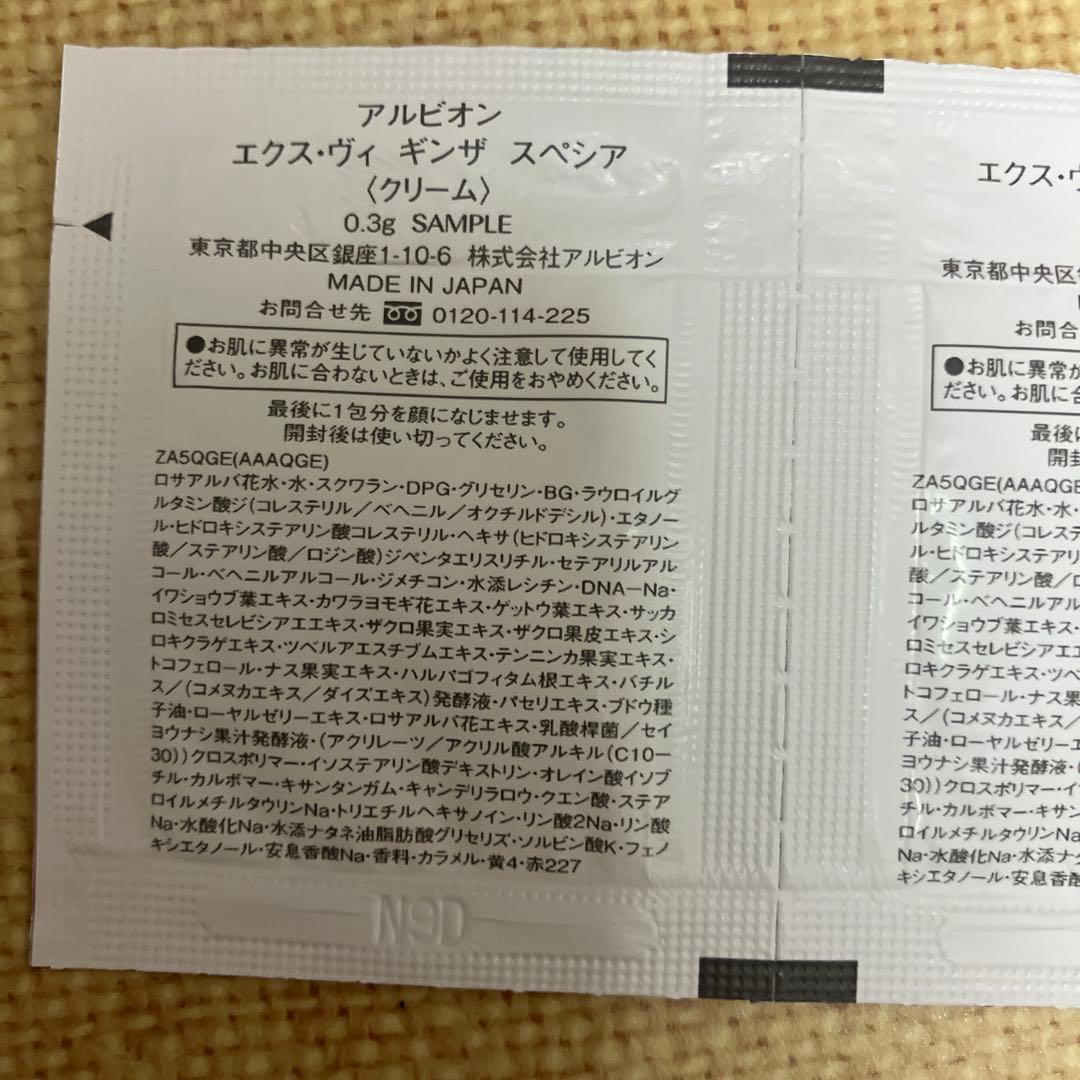 アルビオン
エクス・ヴィ ギンザ スペシア
〈クリーム〉
0.3g SAMPLE
東京都中央区銀座1-10-6 株式会社アルビオン
MADE IN JAPAN
お問合せ先 0120-114-225
●お肌に異常が生じていないかよく注意して使用してく
ださい。お肌に合わないときは、ご使用をおやめください。
最後に1包分を顔になじませます。
開封後は使い切ってください。
ZA5QGE(AAAQGE)
ロサアルバ花水・水・スクワラン・DPG・グリセリン・BG・ラウロイルグ
ルタミン酸ジ(コレステリル/ベヘニル/オクチルドデシル)・エタノー
ル・ヒドロキシステアリン酸コレステリル・ヘキサ(ヒドロキシステアリン
酸/ステアリン酸/ロジン酸)ジペンタエリスリチル・セテアリルアル
コール・ベヘニルアルコール・ジメチコン・水添レシチン・DNA-Na・
イワショウブ葉エキス・カワラヨモギ花エキス・ゲットウ葉エキス・サッカ
ロミセスセレビシアエエキス・ザクロ果実エキス・ザクロ果皮エキス・シ
ロキクラゲエキス・ツベルアエスチブムエキス・テンニンカ果実エキス・
トコフェロール・ナス果実エキス・ハルパゴフィタム根エキス・バチル
ス/(コメヌカエキス/ダイズエキス)発酵液・パセリエキス・ブドウ種
子油・ローヤルゼリーエキス・ロサアルバ花エキス・乳酸桿菌/セイ
ヨウナシ果汁発酵液・(アクリレーツ/アクリル酸アルキル(C10-
30))クロスポリマー・イソステアリン酸デキストリン・オレイン酸イソブ
チル・カルボマー・キサンタンガム・キャンデリラロウ・クエン酸・ステア
ロイルメチルタウリンNa・トリエチルヘキサノイン・リン酸2Na・リン酸
Na・水酸化Na・水添ナタネ油脂肪酸グリセリズ・ソルビン酸K・フェノ
キシエタノール・安息香酸Na・香料・カラメル・黄4・赤227
N9D
エクス・ヴ
東京都中央区
お問合
●お肌に異常が
ださい。お肌に合
最後に
開封
ZA5QGE(AAAQGE
ロサアルバ花水・水・
ルタミン酸ジ(コレステ
ル・ヒドロキシステアリ
酸/ステアリン酸/ロ
コール・ベヘニルアル
イワショウブ葉エキス・
ロミセスセレビシアエ
ロキクラゲエキス・ツベ
トコフェロール・ナス果
ス/(コメヌカエキス/
子油・ローヤルゼリーエ
ヨウナシ果汁発酵液・(
30))クロスポリマー・イ
チル・カルボマー・キサン
ロイルメチルタウリンNa
Na・水酸化Na・水添ナタ
キシエタノール・安息香酸